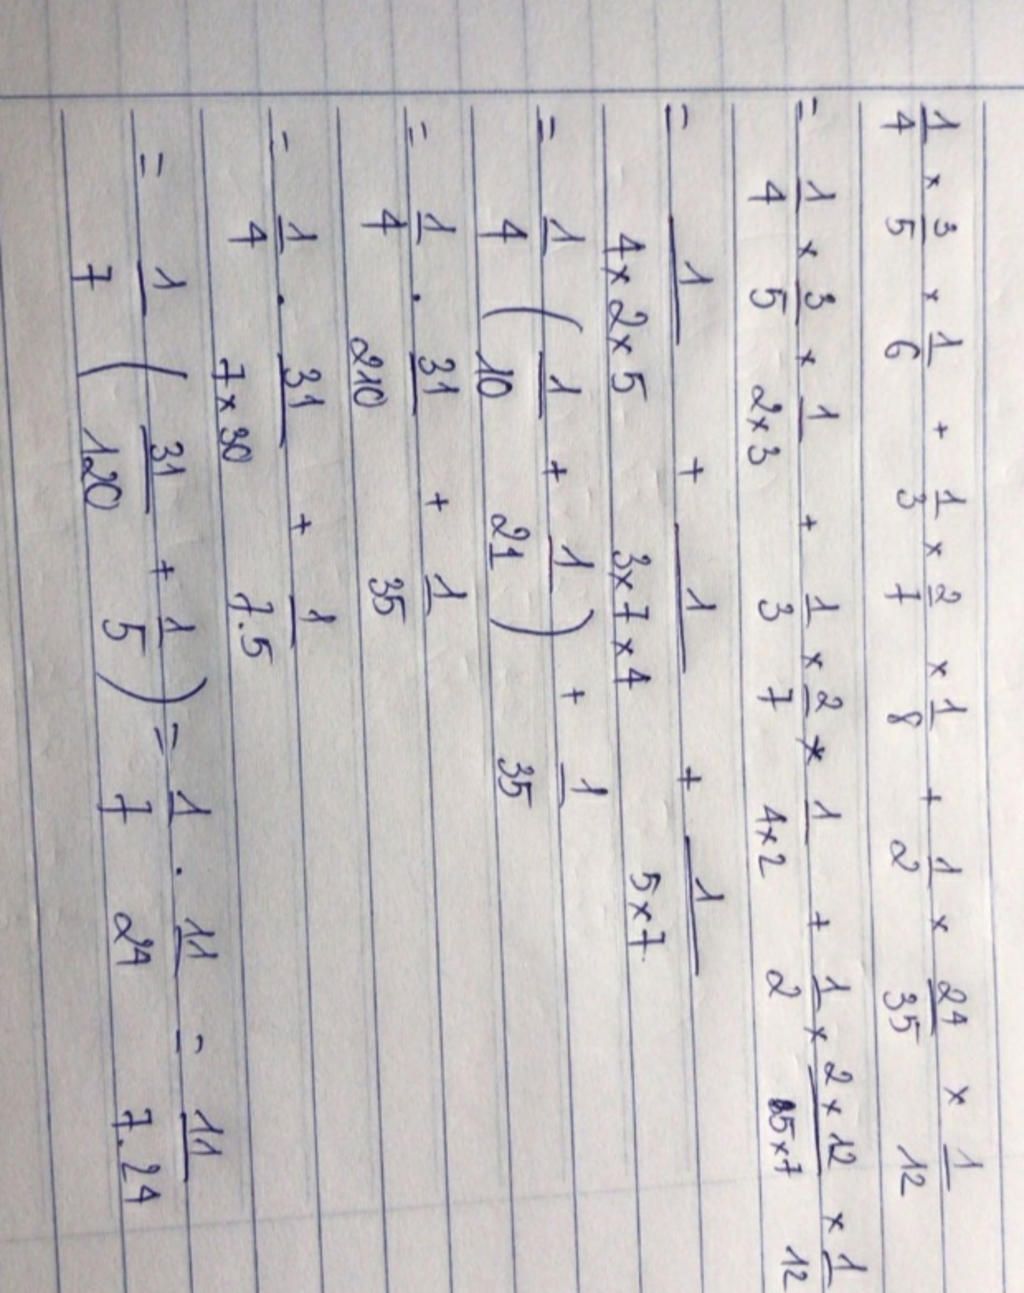 1/4 × 3/5 × 1/6 + 1/3 × 2/7 × 1/8 + 1/2 × 24/35 × 1/12
= 1/4 × 3/5 × 1/(2×3) + 1/3 × 2/7 × 1/(4×2) + 1/2 × (2×12)/(5×7) × 1/12
= 1/(4×2×5) + 1/(3×7×4) + 1/(5×7)
= 1/4 (1/10 + 1/21) + 1/35
= 1/4 . 31/210 + 1/35
= 1/4 . 31/(7×30) + 1/(7.5)
= 1/7 (31/120 + 1/5) = 1/7 . 11/24 = 11/(7.24)